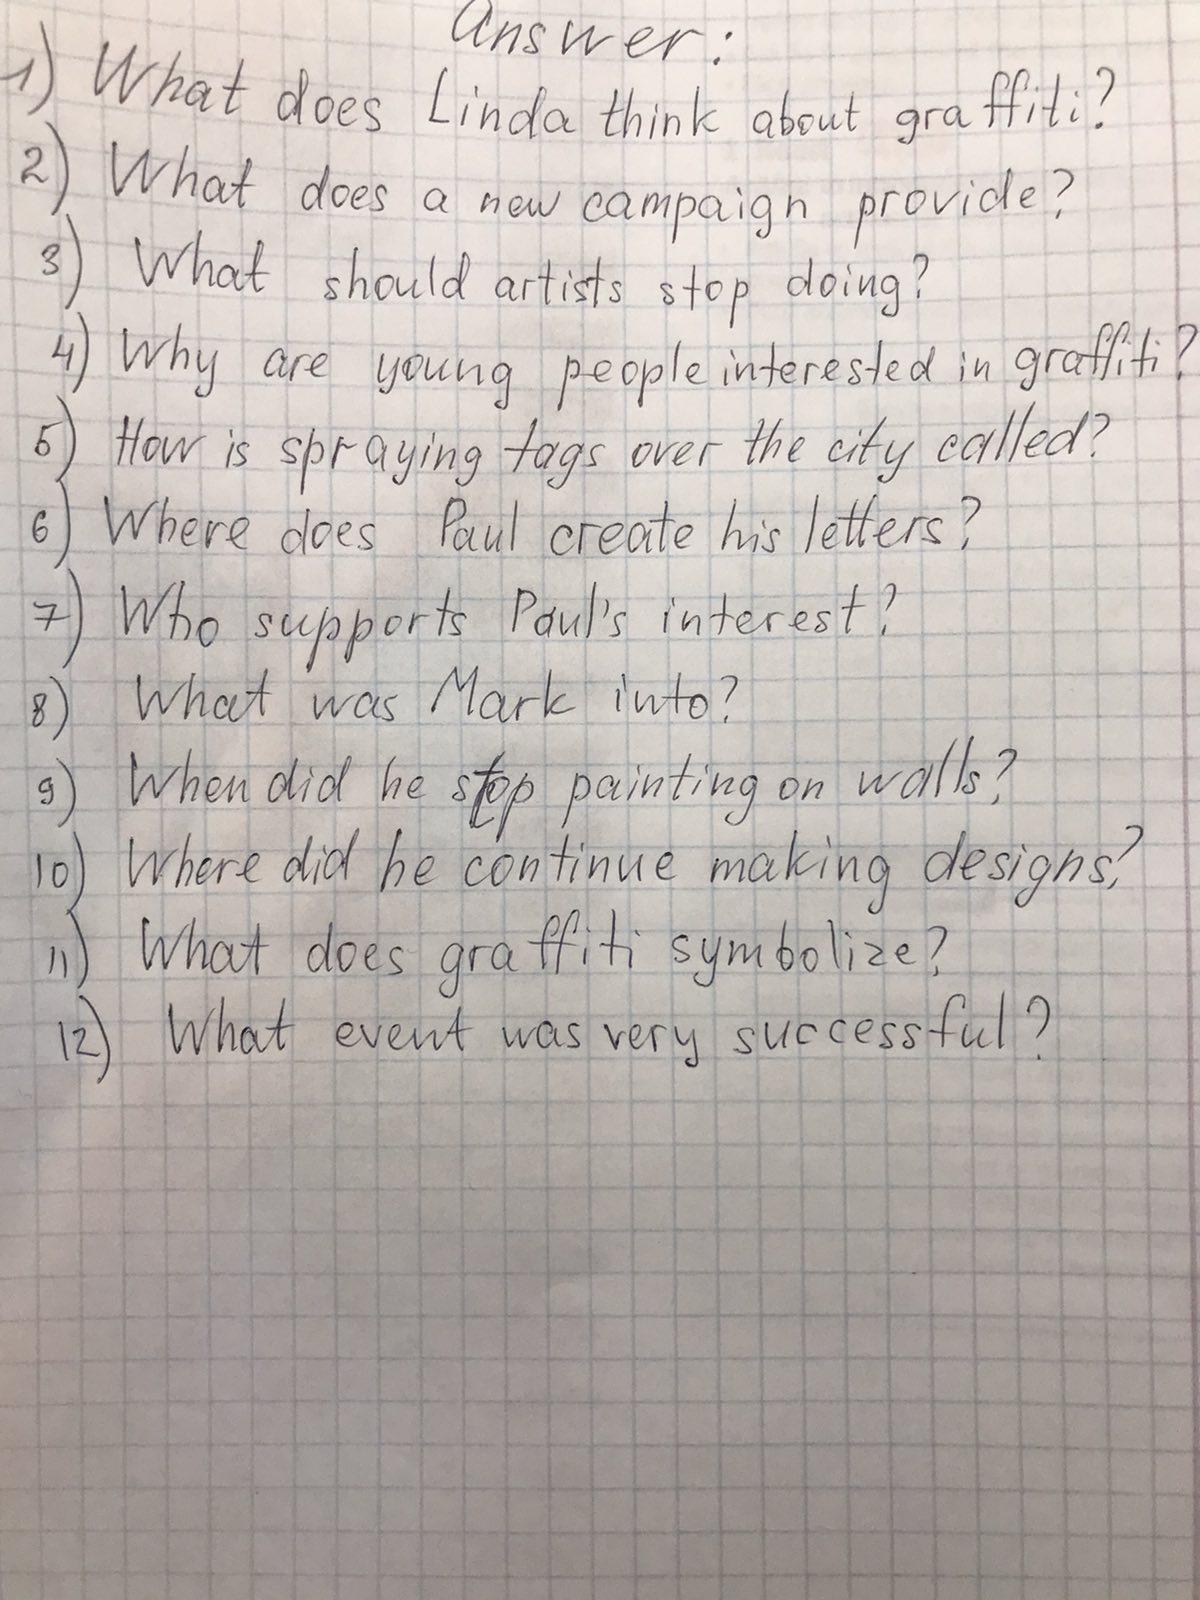 Answer:
1) What does Linda think about graffiti?
2) What does a new campaign provide?
3) What should artists stop doing?
4) Why are young people interested in graffiti?
5) How is spraying tags over the city called?
6) Where does Paul create his letters?
7) Who supports Paul's interest?
8) What was Mark into?
9) When did he stop painting on walls?
10) Where did he continue making designs?
11) What does graffiti symbolize?
12) What event was very successful?